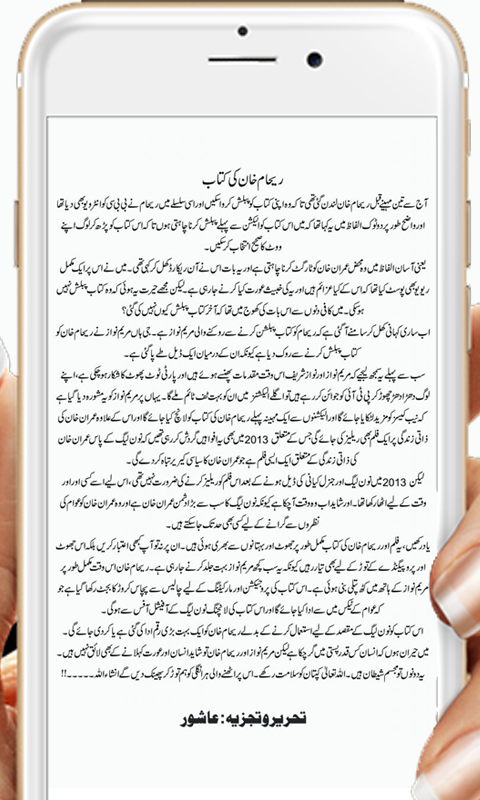 ریحام خان کی کتاب
آج سے تین مہینے قبل ریحام خان لندن گئی تھی تا کہ وہ اپنی کتاب کو پبلش کرواسکیں اور اسی سلسلے میں ریحام نے بی بی سی کو انٹرویو بھی دیا تھا
اور واضح طور پر دو ٹوک الفاظ میں یہ کہا تھا کہ میں اس کتاب کو الیکشن سے پہلے پبلش کرنا چاہتی ہوں تا کہ اس کتاب کو پڑھ کر لوگ اپنے
ووٹ کا صحیح انتخاب کر سکیں۔
یعنی آسان الفاظ میں وہ محض عمران خان کو ٹارگٹ کرنا چاہتی ہے اور یہ بات اس نے آن ریکارڈ کھل کر کہی تھی۔ میں نے اس پر ایک مکمل
ریویو بھی پوسٹ کیا تھا کہ اس کے کیا عزائم ہیں اور یہ کی خبیث عورت کیا کرنے جارہی ہے۔ لیکن مجھے حیرت یہ ہوئی کہ وہ کتاب پبلش نہیں
ہوسکی۔ میں کافی دنوں سے اس بات کی کھوج میں تھا کہ آخر کتاب پبلش کیوں نہیں کی گئی؟
اب ساری کہانی کھل کر سامنے آگئی ہے کہ ریحام کو کتاب پبلشن کرنے سے روکنے والی مریم نواز ہے۔ جی ہاں مریم نواز نے ریحام خان کو
کتاب پبلش کرنے سے روک دیا ہے کیونکہ ان کے درمیان ایک ڈیل طے پا گئی ہے۔
سب سے پہلے یہ سمجھ لیجئے کہ مریم نواز اور نواز شریف اس وقت مقدمات پھنسے ہوئے ہیں اور پارٹی ٹوٹ پھوٹ کا شکار ہو چکی ہے، اپنے
لوگ دھڑا دھڑ چھوڑ کر پی ٹی آئی کو جوائن کر رہے ہیں تو اگلے الیکشنز میں ان کو بہت ٹف ٹائم ملے گا۔ یہاں پر مریم نواز کو یہ مشورہ دیا گیا ہے
کہ نیب کیسز کو مزید لٹکایا جائے گا اور الیکشنوں سے ایک مہینہ پہلے ریحام خان کی کتاب کو لانچ کیا جائے گا اور اس کے علاوہ عمران خان کی
ذاتی زندگی پر ایک فلم بھی ریلیز کی جائے گی جس کے متعلق 2013 میں بھی یہ افواہیں گردش کر رہی تھیں کہ نون لیگ کے پاس عمران خان
کی ذاتی زندگی کے متعلق ایک ایسی فلم ہے جو عمران خان کا سیاسی کیریر تباہ کر دے گی۔
لیکن 2013 میں نون لیگ اور جنرل کیانی کی ڈیل ہونے کے بعد اس فلم کو ریلیز کرنے کی ضرورت نہیں تھی، اس لیے اسے کسی اور
وقت کے لیے اٹھا رکھا تھا۔ اور شاید اب وہ وقت آچکا ہے کیونکہ نون لیگ کا سب سے بڑا دشمن عمران خان ہے اور وہ عمران خان کو عوام کی
نظروں سے گرانے کے لیے کسی بھی حد تک جا سکتے ہیں۔
یاد رکھیں، یہ فلم اور ریحام خان کی کتاب مکمل طور پر جھوٹ اور بہتانوں سے بھری ہوئی ہیں۔ ان پر نہ تو آپ بھی اعتبار کریں بلکہ اس جھوٹ
اور پروپیگنڈے کے توڑ کے لیے بھی تیار رہیں کیونکہ یہ سب کچھ مریم نواز بہت جلد کرنے جارہی ہے۔ ریحام خان اس وقت مکمل طور پر
مریم نواز کے ہاتھ میں کٹھ پتلی بنی ہوئی ہے۔ اس کتاب کی پروجیکشن اور مارکیٹنگ کے لیے چالیس سے پچاس کروڑ کا بجٹ رکھا گیا ہے جو
کہ عوام کے ٹیکس میں سے ادا کیا جائے گا اور اس کتاب کی لانچنگ نون لیگ کے آفیشل آفس سے ہوگی۔
اس کتاب کو نون لیگ کے مقصد کے لیے استعمال کرنے کے بدلے ریحام خان کو ایک بہت بڑی رقم ادا کی گئی ہے یا کر دی جائے گی۔
میں حیران ہوں کہ انسان کس قدر پستی میں گر چکا ہے لیکن مریم نواز اور ریحام خان تو شاید انسان اور عورت کہلانے کے بھی لائق نہیں ہیں۔
یہ دونوں تو مجسم شیطان ہیں۔ اللہ تعالٰی کپتان کو سلامت رکھے۔ اس پر اٹھنے والی ہر انگلی کو ہم توڑ کر پھینک دیں گے انشاء اللہ۔۔۔۔۔!!
تحریر و تجزیہ: عاشور